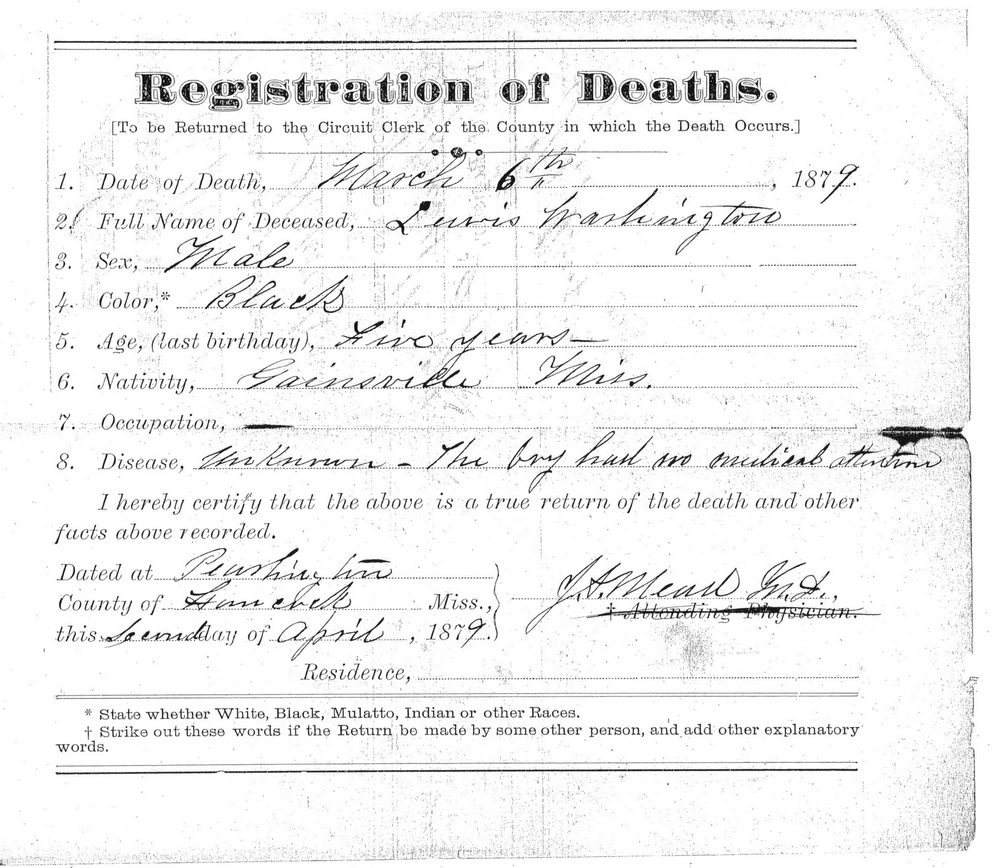 Registration of Deaths.
[To be Returned to the Circuit Clerk of the County in which the Death Occurs.]
1. Date of Death, March 6th, 1879.
2. Full Name of Deceased, Lewis Washington
3. Sex, Male
4. Color,* Black
5. Age, (last birthday), Five years—
6. Nativity, Gainsville Miss.
7. Occupation, —
8. Disease, Unknown – The boy had no medical attention
I hereby certify that the above is a true return of the death and other
facts above recorded.
Dated at Pearlington
County of Hancock Miss.,
this Second day of April, 1879.
Mead M.D.,
† Attending Physician.
Residence,
* State whether White, Black, Mulatto, Indian or other Races.
† Strike out these words if the Return be made by some other person, and add other explanatory
words.